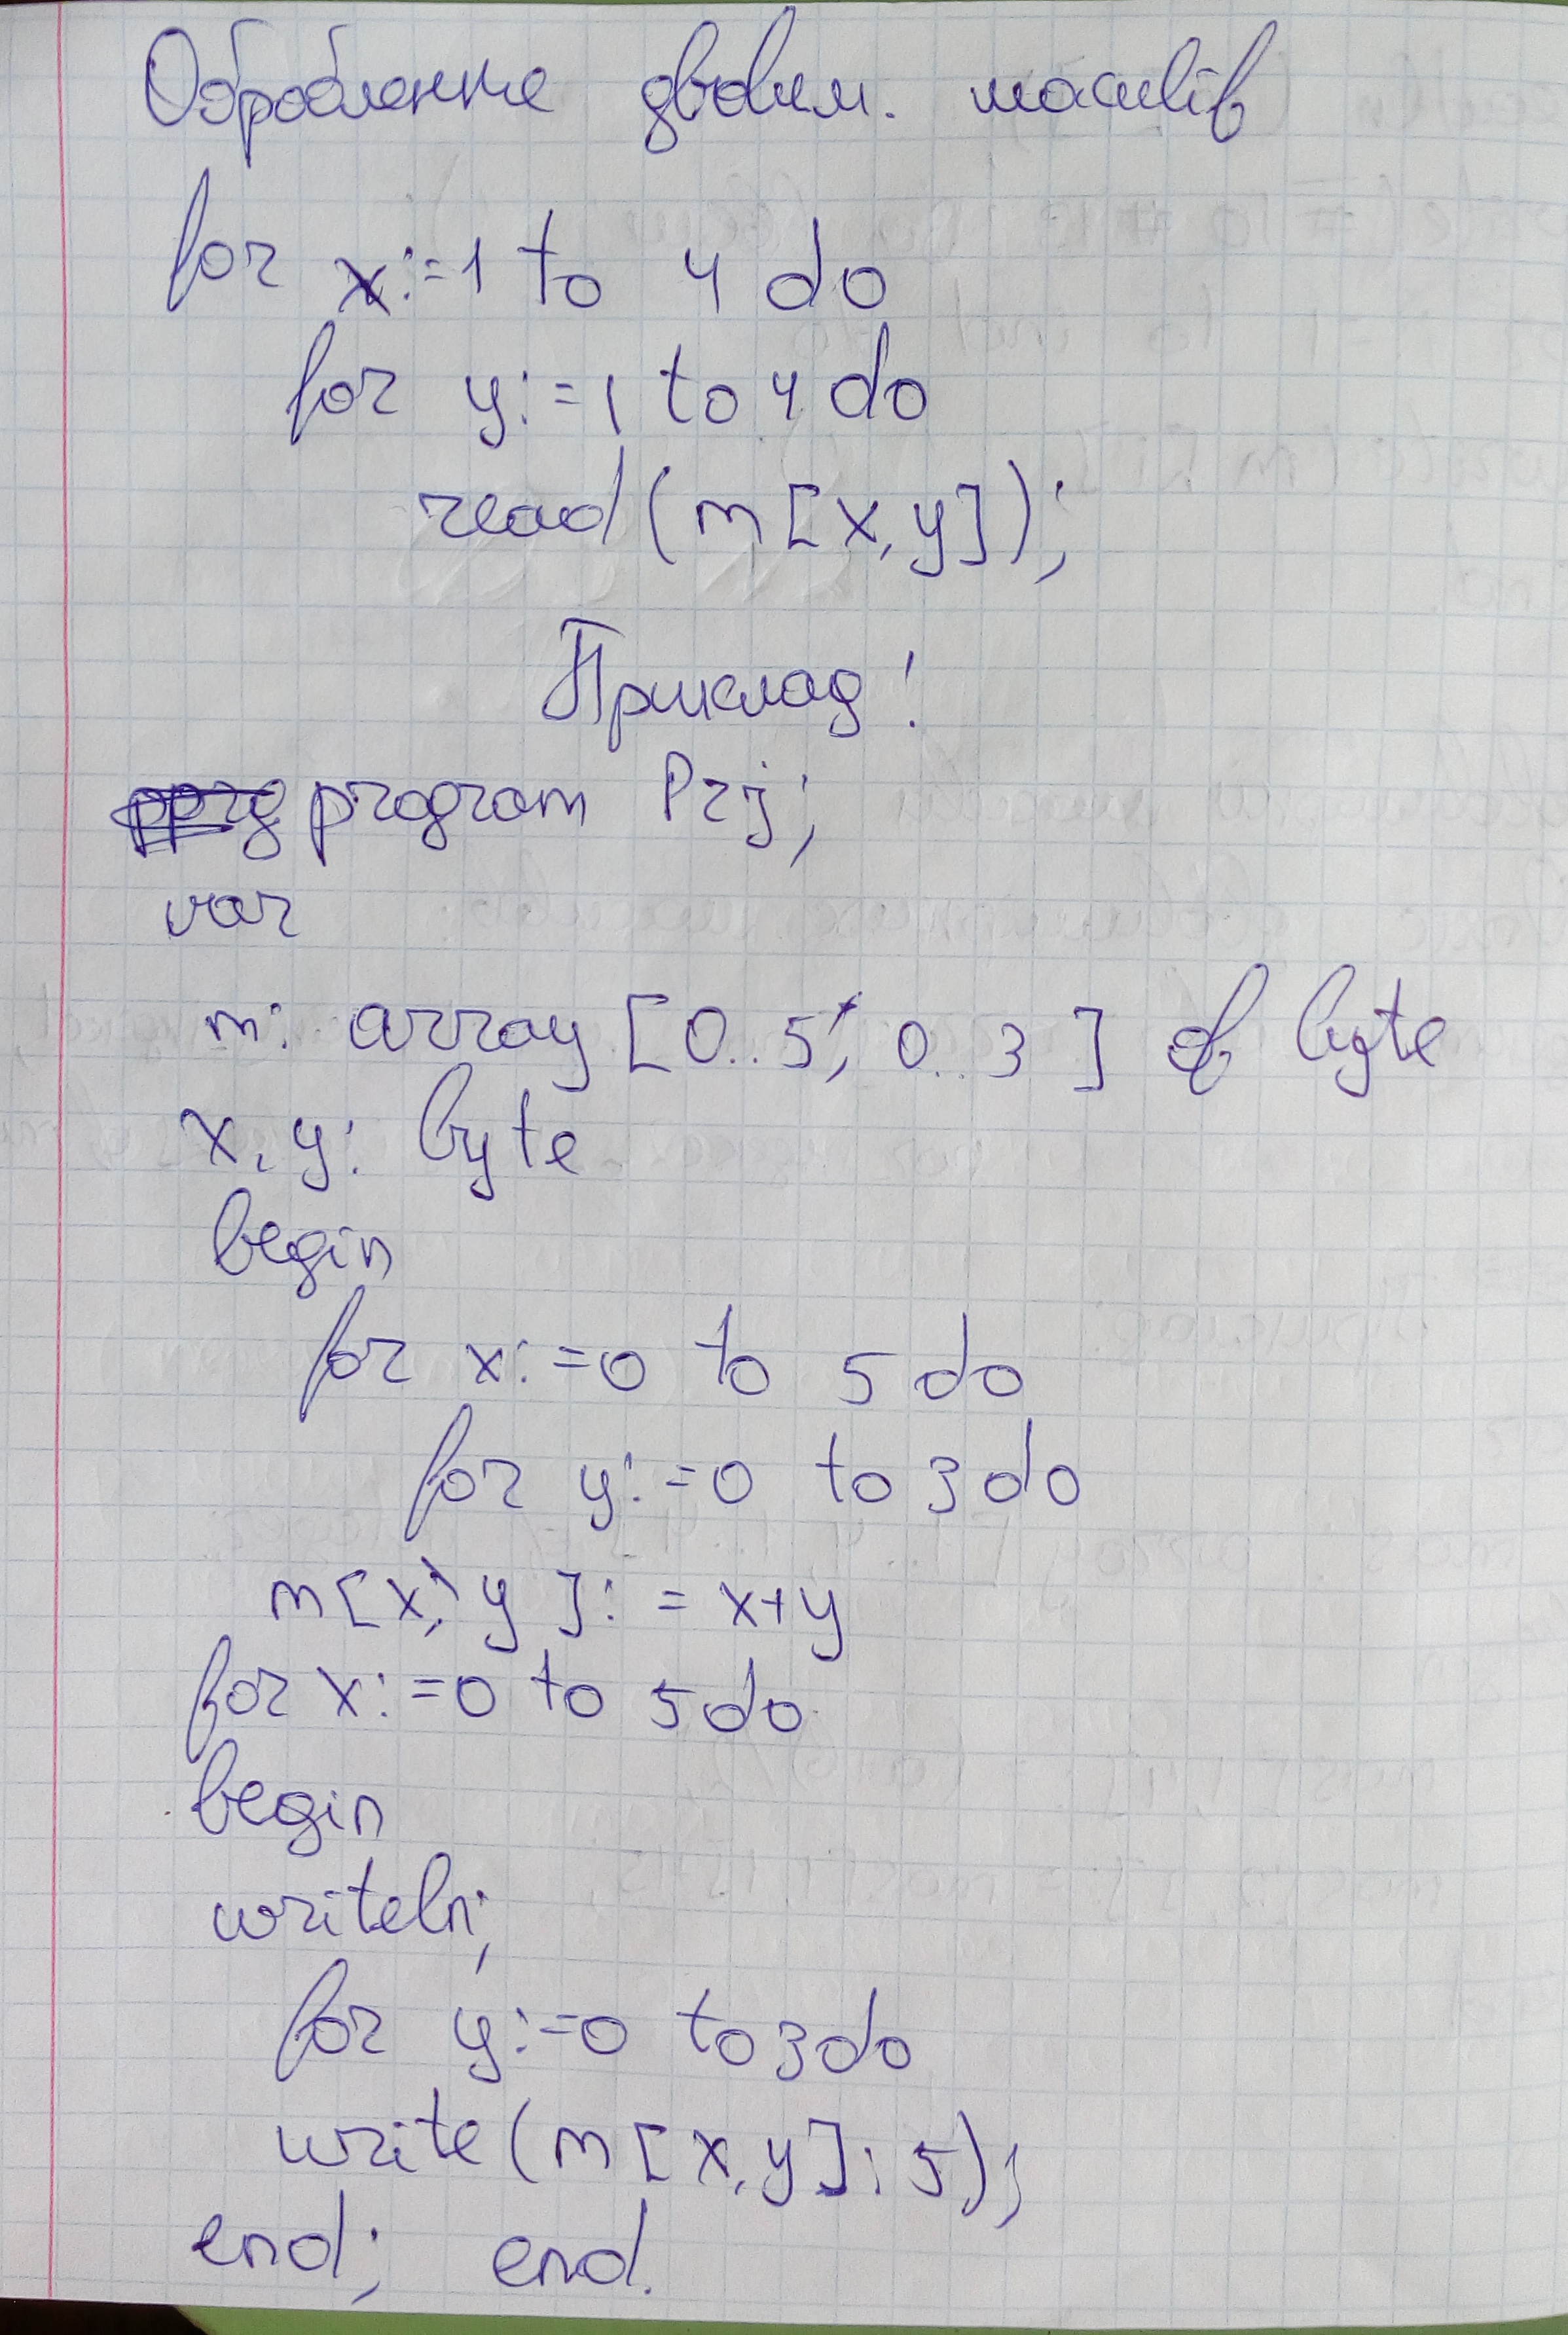 Оброблення двовим. масивів
for x:=1 to 4 do
for y:=1 to 4 do
read(m[x,y]);
Приклад!
program Prj;
var
m: array [0..5, 0..3] of byte
x, y: byte
begin
for x:=0 to 5 do
for y:=0 to 3 do
m[x, y]:=x+y
for x:=0 to 5 do
begin
writeln;
for y:=0 to 3 do
write(m[x,y]:5);
end; end.